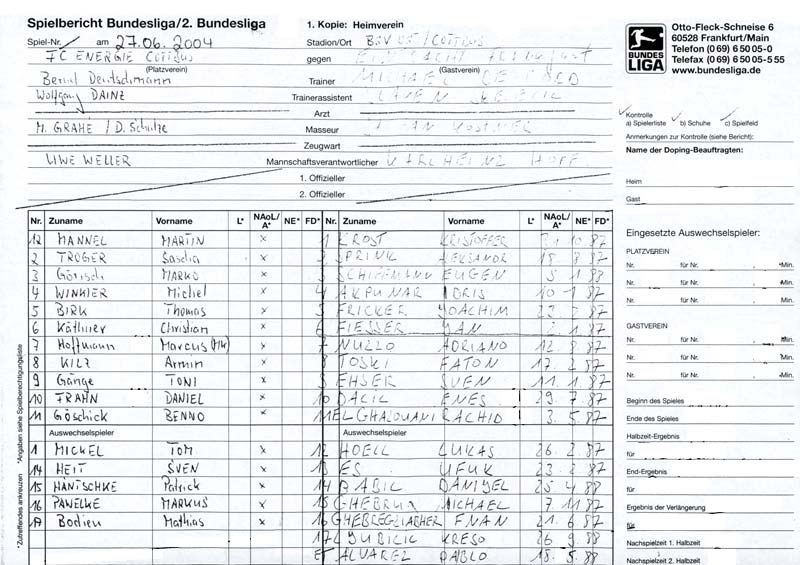 Spielbericht Bundesliga/2. Bundesliga
1. Kopie: Heimverein
Spiel-Nr. am 27.06.2004 Stadion/Ort
FC ENERGIE COTTBUS gegen EINTRACHT FRANKFURT
(Platzverein) (Gastverein)
Bernd Deutschmann Trainer MICHAEL
Wolfgang DAINZ Trainerassistent
Arzt
M. GRAHE / D. Schulze Masseur
Zeugwart
UWE WELLER Mannschaftsverantwortlicher KARLHEINZ HOFF
1. Offizieller
2. Offizieller
BUNDES LIGA
Otto-Fleck-Schneise 6
60528 Frankfurt/Main
Telefon (0 69) 6 50 05-0
Telefax (0 69) 6 50 05-5 55
www.bundesliga.de
Kontrolle
a) Spielerliste b) Schuhe c) Spielfeld
Anmerkungen zur Kontrolle (siehe Bericht):
Name der Doping-Beauftragten:
Heim
Gast
Nr. Zuname Vorname L* NAoL/A* NE* FD* Nr. Zuname Vorname L* NAoL/A* NE* FD*
12 MANNEL MARTIN x 1 FROST KRISTOFFER 10 87
2 TRÖGER Sascha x 2 SPRINK ALEKSANDR 18 8 87
3 Görisch MARKO x 3 SCHIEFMANN EUGEN 5 1 88
4 WINKLER Michel x 4 AKPUNAR IDRIS 10 1 87
5 BIRK Thomas x 5 FRICKER JOACHIM 87
6 Käthner Christian x 6 FIESSER JAN 2 1 87
7 Hoffmann Marcus x 7 NUZZO ADRIANO 12 8 87
8 KILZ Armin x 8 TOSKI FATON 17 2 87
9 Gänge TONI x 9 EHSER SVEN 11 1 87
10 FRAHN DANIEL x 10 DACIC ENES 29 7 87
11 Göschick BENNO x 11 EL GHALOUANI RACHID 3 5 87
Auswechselspieler Auswechselspieler
1 MICKEL TOM x 12 HOELL LUKAS 26 2 87
14 HEIT SVEN x 13 ES UFUK 23 2 87
15 HÄNTSCHKE Patrick x 14 DANIYEL 25 4 88
16 PAWELKE MARKUS x 15 MICHAEL 7 11 87
17 Bodien Mathias x 16 21 6 87
17 LJUBICIC KRESO 26 9 88
ET ALVAREZ PABLO 18 5 88
Eingesetzte Auswechselspieler:
PLATZVEREIN
Nr. für Nr. . *Min.
Nr. für Nr. . *Min.
Nr. für Nr. . *Min.
GASTVEREIN
Nr. für Nr. . *Min.
Nr. für Nr. . *Min.
Nr. für Nr. . *Min.
Beginn des Spieles
Ende des Spieles
Halbzeit-Ergebnis
für
End-Ergebnis
für
Ergebnis der Verlängerung
für
Nachspielzeit 1. Halbzeit
Nachspielzeit 2. Halbzeit
*Zutreffendes ankreuzen *Angaben siehe Spielberechtigungsliste